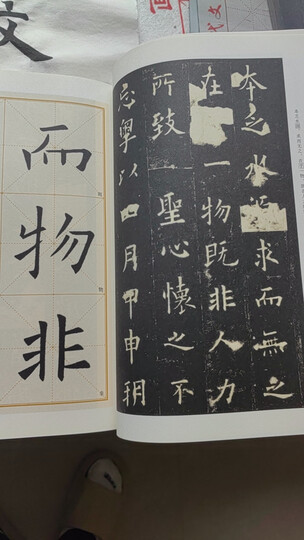 本乏水源求而無之
在一物既非人力
所致聖心懷之不
忘粵以四月甲申朔
而
物
非